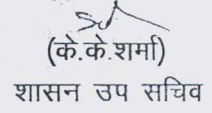 (के.के.शर्मा)
शासन उप सचिव